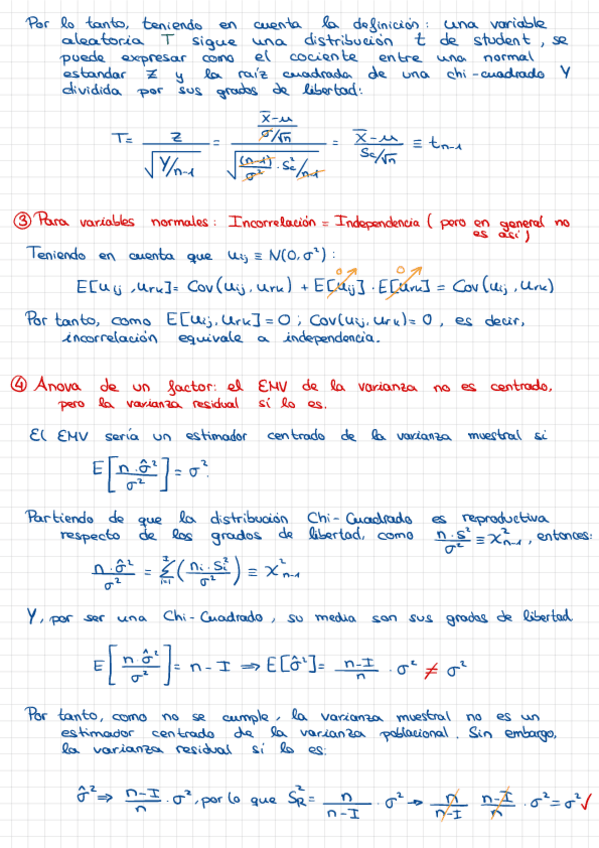 Por lo tanto, teniendo en cuenta la definición: una variable
aleatoria T sigue una distribución t de student, se
puede expresar como el cociente entre una normal
estandar Z y la raíz cuadrada de una chi-cuadrado Y
dividida por sus grados de libertad:
T = Z / √(Y/n-1) = ((x̄-μ)/(σ/√n)) / √((n-1)/σ² · Sc²/n-1) = (x̄-μ)/(Sc/√n) ≡ t_{n-1}
③ Para variables normales: Incorrelación = Independencia (pero en general no
es así)
Teniendo en cuenta que u_{ij} ≡ N(0,σ²):
E[u_{ij}, u_{rk}] = Cov(u_{ij}, u_{rk}) + E[u_{ij}]⁰ · E[u_{rk}]⁰ = Cov(u_{ij}, u_{rk})
Por tanto, como E[u_{ij}, u_{rk}] = 0; Cov(u_{ij}, u_{rk}) = 0, es decir,
incorrelación equivale a independencia.
④ Anova de un factor: el EMV de la varianza no es centrado,
pero la varianza residual sí lo es.
El EMV sería un estimador centrado de la varianza muestral si
E[n·σ̂²/σ²] = σ².
Partiendo de que la distribución Chi-Cuadrado es reproductiva
respecto de los grados de libertad, como n·s²/σ² ≡ X²_{n-1}, entonces:
n·σ̂²/σ² = Σ^I_{i}(n_i·S_i²/σ²) ≡ X²_{n-1}
Y, por ser una Chi-Cuadrado, su media son sus grados de libertad
E[n σ̂²/σ²] = n-I ⇒ E[σ̂²] = (n-I)/n · σ² ≠ σ²
Por tanto, como no se cumple, la varianza muestral no es un
estimador centrado de la varianza poblacional. Sin embargo,
la varianza residual sí lo es:
σ̂² ⇒ (n-I)/n · σ², por lo que S_R² = n/(n-I) · σ² → n/(n-I) (n-I)/n · σ² = σ² ✓